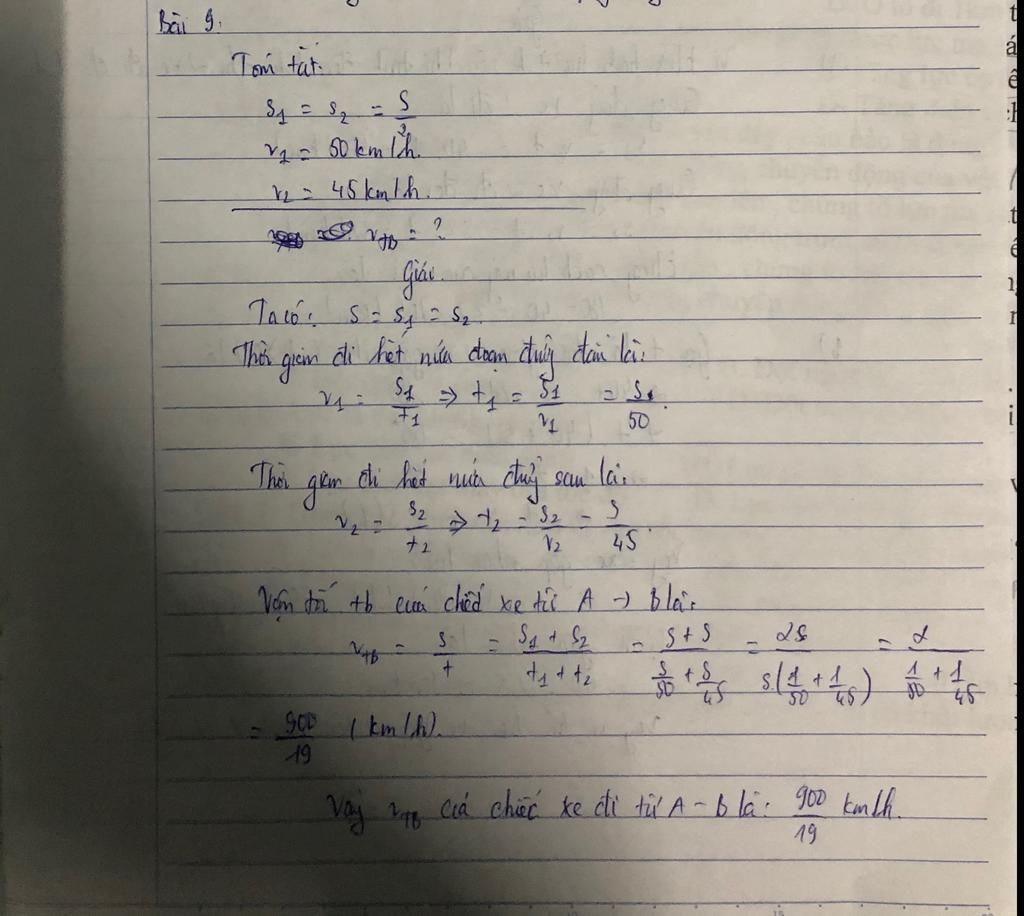 Bài 9.
Tóm tắt:
s₁ = s₂ = s/2
v₁ = 50 km/h.
v₂ = 45 km/h.
v_tb = ?
Giải.
Ta có: s = s₁ = s₂.
Thời gian đi hết nửa đoạn đường đầu là:
v₁ = s₁/t₁ => t₁ = s₁/v₁ = s/50.
Thời gian đi hết nửa đường sau là:
v₂ = s₂/t₂ => t₂ = s₂/v₂ = s/45.
Vận tốc tb của chiếc xe từ A -> B là:
v_tb = s/t = (s₁ + s₂)/(t₁ + t₂) = (s + s)/(s/50 + s/45) = 2s/(s.(1/50 + 1/45)) = 2/(1/50 + 1/45)
= 900/19 (km/h).
Vậy v_tb của chiếc xe đi từ A - B là: 900/19 km/h.